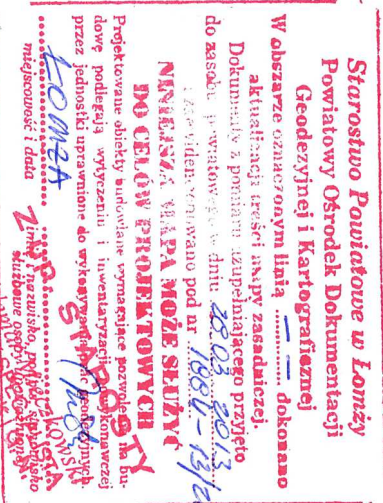 Starostwo Powiatowe w Łomży
Powiatowy Ośrodek Dokumentacji
Geodezyjnej i Kartograficznej
W obszarze oznaczonym linią ............ dokonano
aktualizacji treści mapy zasadniczej.
Dokumenty z pomiaru uzupełniającego przyjęto
do zasobu powiatowego w dniu 28 03 2013
i zaewidencjonowano pod nr 1884-13/2
NINIEJSZA MAPA MOŻE SŁUŻYĆ
DO CELÓW PROJEKTOWYCH
Projektowane obiekty budowlane wymagające pozwolenia na bu-
dowę podlegają wytyczeniu i inwentaryzacji
przez jednostki uprawnione do wykonywania
ŁOMŻA
miejscowość i data
imię i nazwisko, podpis, stanowisko
służbowe osoby
Z UP. STAROSTY